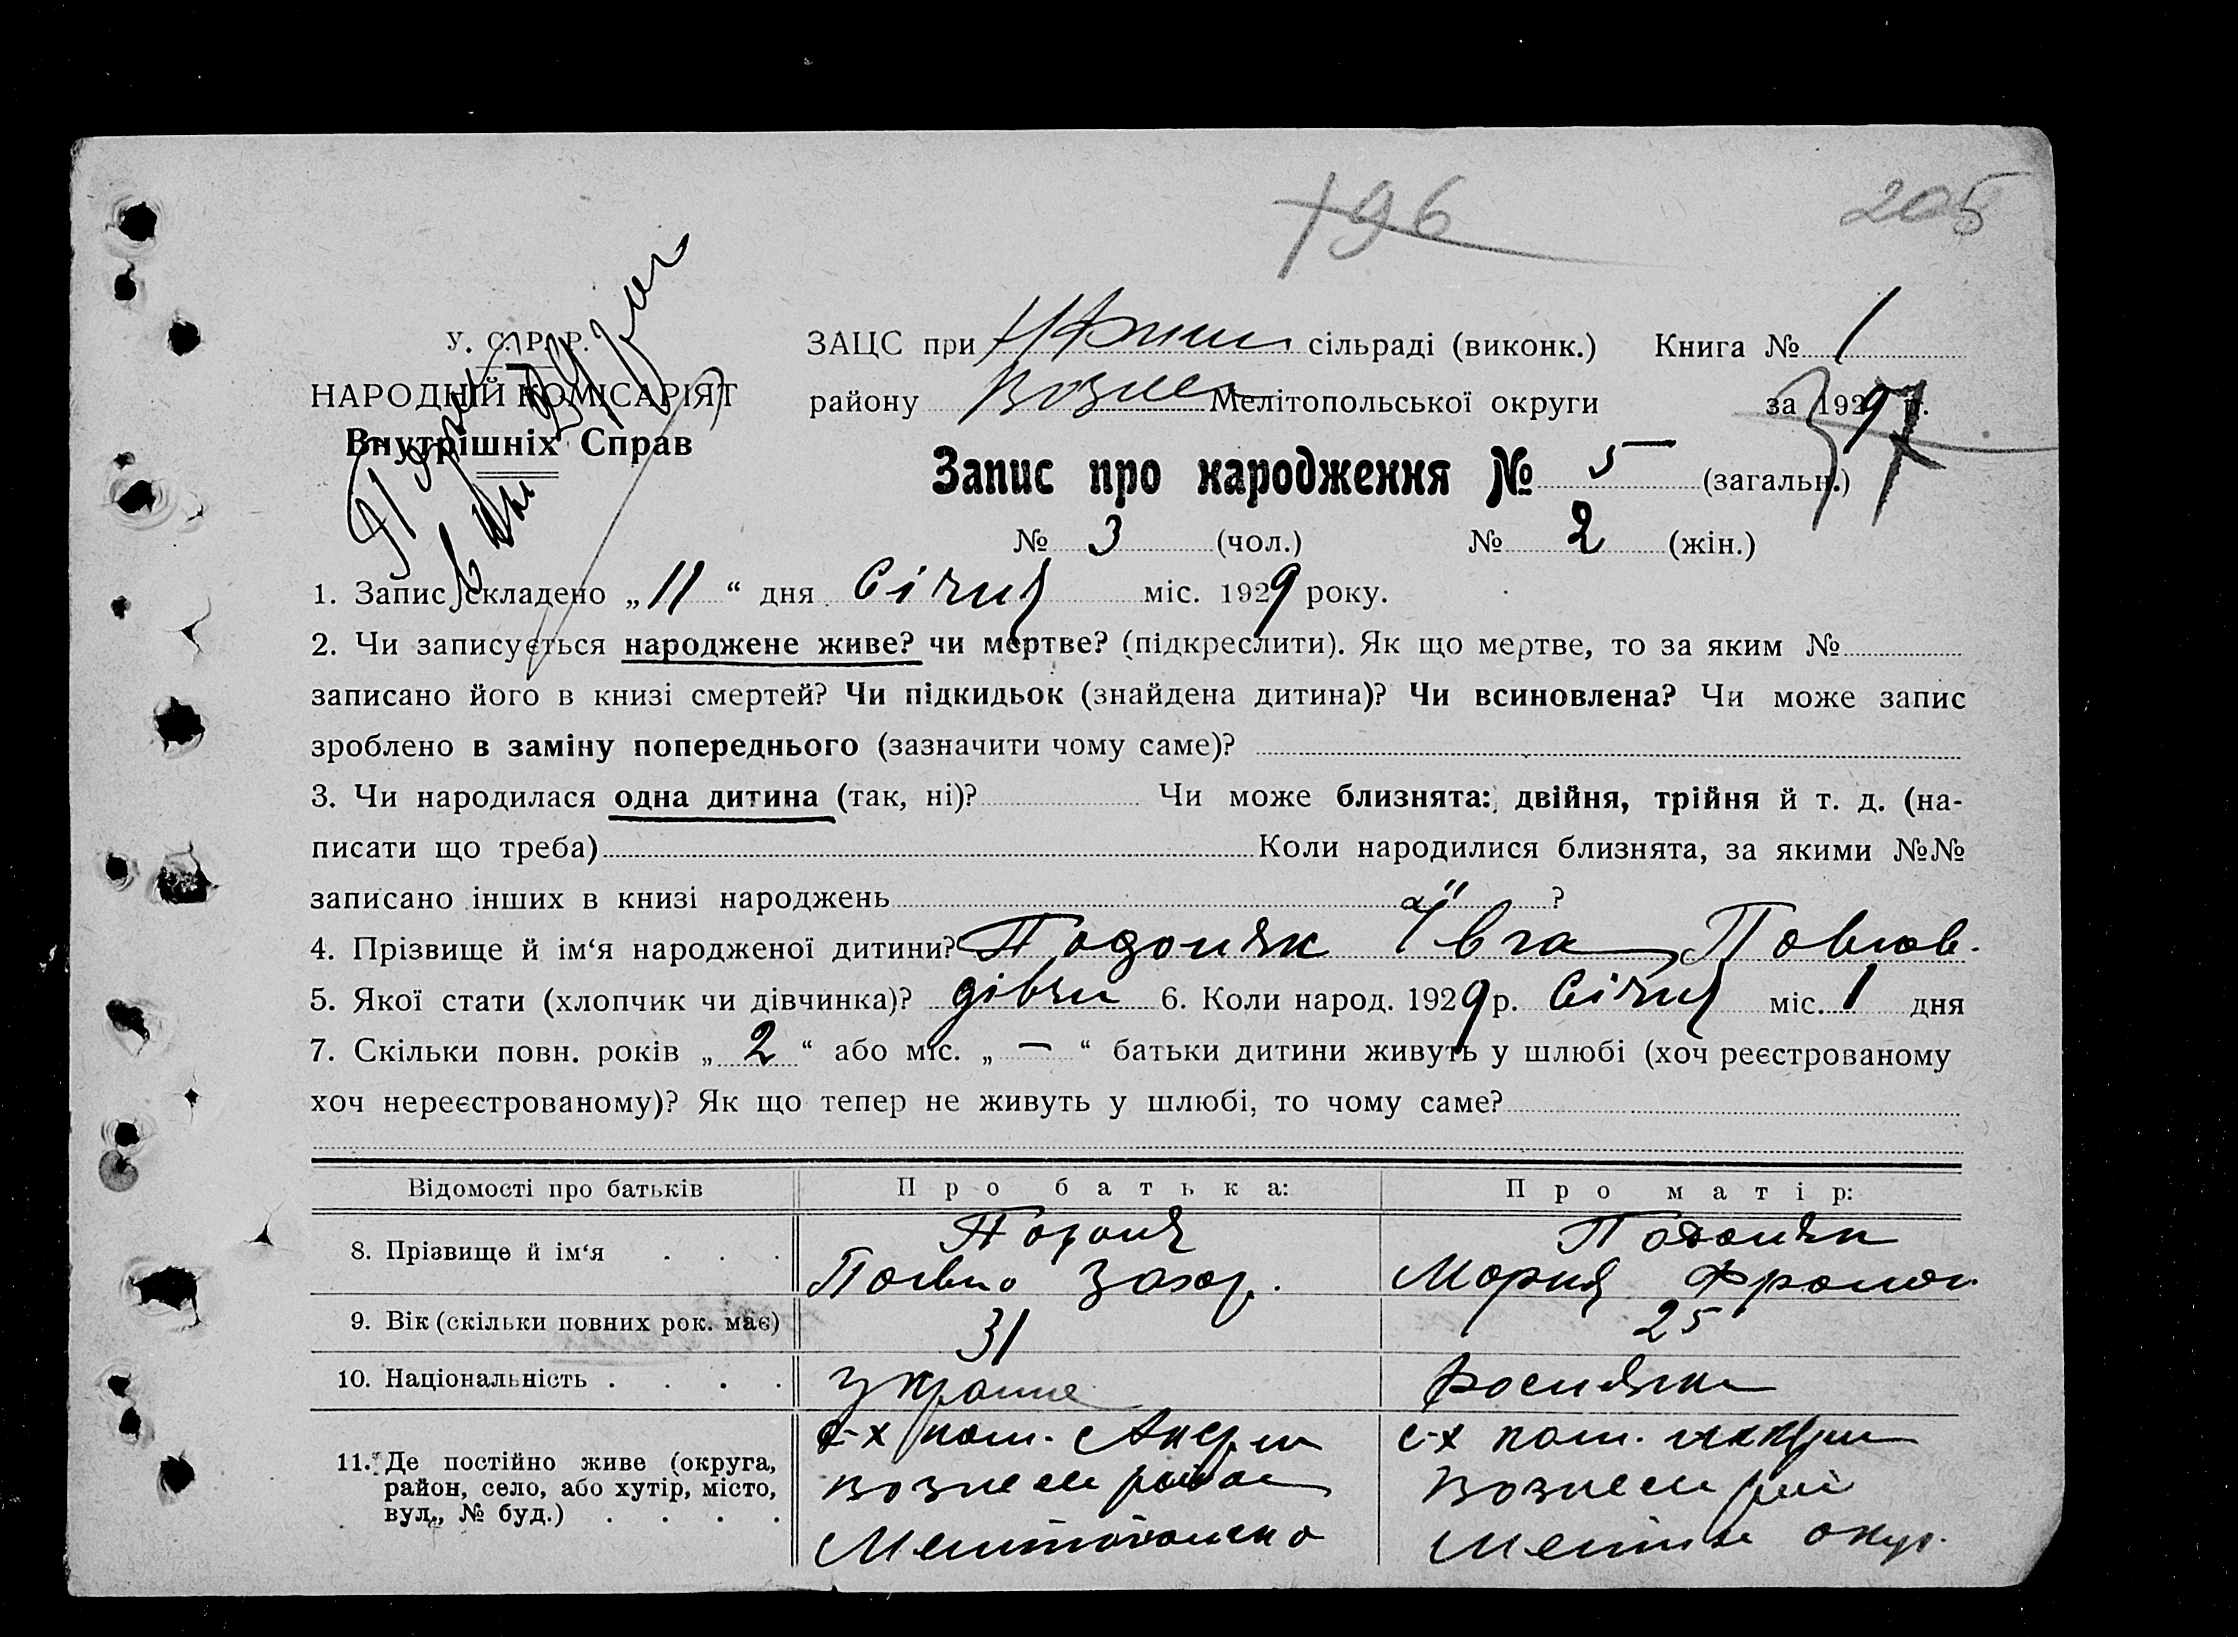 196
205
У. С. Р. Р.
НАРОДНІЙ КОМІСАРІЯТ
Внутрішніх Справ
ЗАЦС при сільраді (виконк.) Книга № 1
району Вознес Мелітопольської округи за 1929 р.
37
Запис про народження № 5 (загальн.)
№ 3 (чол.) № 2 (жін.)
1. Запис складено „11“ дня Січня міс. 1929 року.
2. Чи записується народжене живе? чи мертве? (підкреслити). Як що мертве, то за яким №
записано його в книзі смертей? Чи підкидьок (знайдена дитина)? Чи всиновлена? Чи може запис
зроблено в заміну попереднього (зазначити чому саме)?
3. Чи народилася одна дитина (так, ні)? Чи може близнята: двійня, трійня й т. д. (на-
писати що треба) Коли народилися близнята, за якими №№
записано інших в книзі народжень ?
4. Прізвище й ім‘я народженої дитини? Подоляк Ївга Павлов.
5. Якої стати (хлопчик чи дівчинка)? дівчи 6. Коли народ. 1929 р. Січня міс. 1 дня
7. Скільки повн. років „2“ або міс. „—“ батьки дитини живуть у шлюбі (хоч реєстрованому
хоч нереєстрованому)? Як що тепер не живуть у шлюбі, то чому саме?
Відомості про батьків Про батька: Про матір:
8. Прізвище й ім‘я . . . Подоля Подоляк
Павло Захар. Мария
9. Вік (скільки повних рок. має) 31 25
10. Національність . . . . Украине Росиянка
11. Де постійно живе (округа, с-х с-х
район, село, або хутір, місто, вознесен район вознесен рай
вул., № буд.) . . . . Мелитопольско округ.